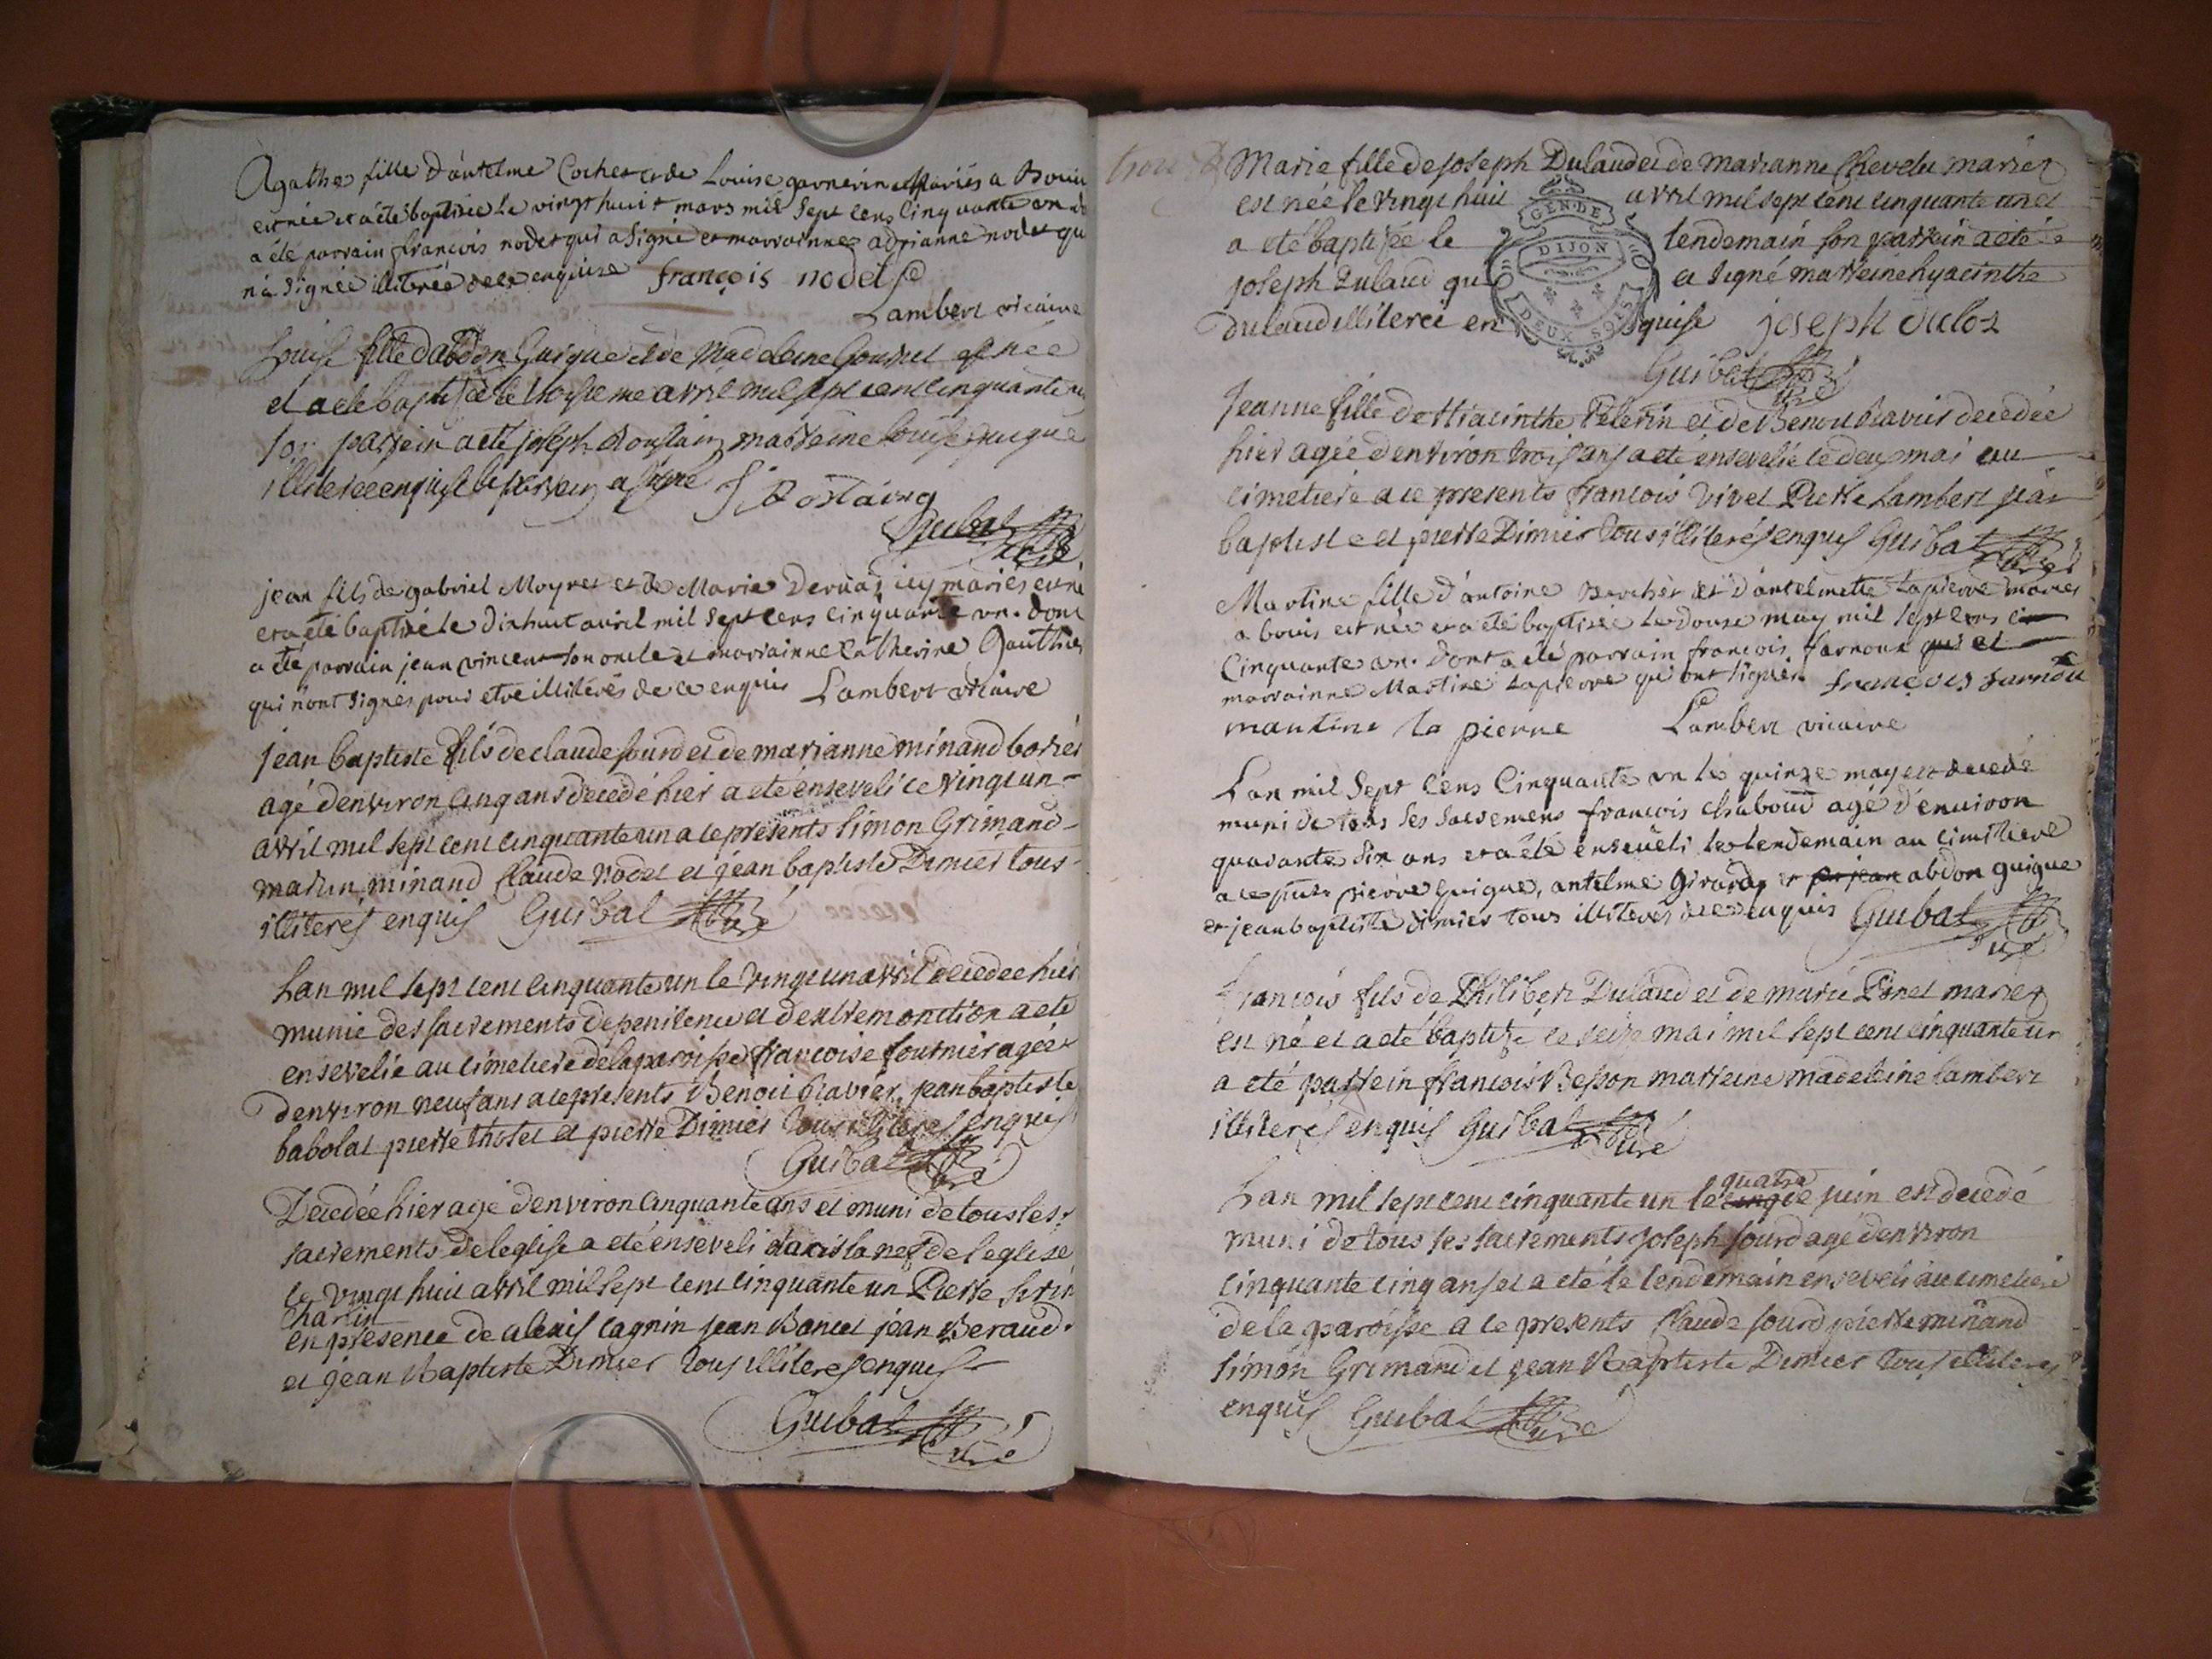 Agathe fille d'antelme Cochet et de Louise garnerin Mariés a Bouis
est née et a été baptisée le vingt huit mars mil sept cens Cinquante un
a été parrain françois nodet qui a signé et marrainne adrianne nodet qu
n'a signée illiterée de ce enquise françois nodet
Lambert vicaire
Louise fille d'abdon Guigue et de Madeleine est née
et a eté baptisée le troisieme avril mil sept cent cinquante un
son parrein a eté joseph Roustain marreine louise guigue
illiterée enquise le parrein a signé J Rostaing
Guibal curé
jean fils de gabriel Moyret et de Marie Dervas icy mariés est né
et a été baptisé le dixhuit avril mil sept cens cinquante un. dont
a été parrain jean vincent son oncle et marrainne Catherine Gauthier
qui n'ont signés pour etre illitérés de ce enquis Lambert vicaire
jean baptiste fils de claude sourd et de marianne minand
agé d'environ cinq ans decedé hier a eté enseveli le vingt un
avril mil sept cent cinquante un a ce présents simon Grimand
martin minand Claude nodet et jean baptiste Dimier tous
illiterés enquis Guibal curé
Lan mil sept cent cinquante un le vingt un avril decedée hier
munie des sacrements de penitence et d'extremonction a eté
ensevelie au cimetiere de la paroisse françoise fournier agée
denviron neuf ans a ce presents Benoit Ravier, jean baptiste
babolat pierre thotet et pierre Dimier tous illiterés enquis
Guibal curé
Decedée hier agé denviron cinquante ans et muni de tous les
sacrements de leglise a eté enseveli dans la nef de l'eglise
le vingt huit avril mil sept cent cinquante un Pierre
Charlin
en presence de alexis cagnin jean Bancel jean Beraud
et jean Baptiste Dimier tous illiterés enquis
Guibal curé
Marie fille de joseph Dulaud et de marianne Chevelu mariés
est née le vingt huit avril mil sept cent cinquante un et
a eté baptisée le lendemain son parrein a eté
joseph Dulaud qui a signé marreine hyacinthe
Dulaud illiterée enquise joseph dulos
GEN. DE
DIJON
DEUX SOLS
Guibal curé
Jeanne fille de Hiacinthe Pelerin et de Benoite Ravier decedée
hier agée denviron trois ans a eté ensevelie le deux mai au
cimetiere a ce presents francois vivet Pierre Lambert jean
baptiste et pierre Dimier tous illiterés enquis Guibal curé
Martine fille d'antoine et d'antelmette Lapierre mariés
a bouis est née et a été baptisée le douse may mil sept cens
Cinquante un. dont a été parrain francois farnoux qui et
marrainne Martine Lapierre qui ont signés. françois farnou
mantine la pierre Lambert vicaire
Lan mil sept cens Cinquante un le quinze may est decedé
muni de tous ses sacremens francois chaboud agé d'environ
quarante six ans et a été enseuëli le lendemain au cimitiere
a ce pnts pierre guigue, antelme Girardy et abdon guigue
et jean baptiste dimier tous illiterés de ce enquis Guibal curé
francois fils de Philibert Dulaud et de marie Pinet mariés
est né et a eté baptizé le seize mai mil sept cent cinquante un
a eté parrein francois Besson marreine madeleine lambert
illiterés enquis Guibal curé
Lan mil sept cent cinquante un le quatre juin est decedé
muni de tous ses sacrements joseph sourd agé denviron
cinquante cinq ans et a eté le lendemain enseveli au cimetiere
de la paroisse a ce presents Claude sourd pierre minand
simon Grimand et jean Baptiste Dimier tous illiterés
enquis Guibal curé